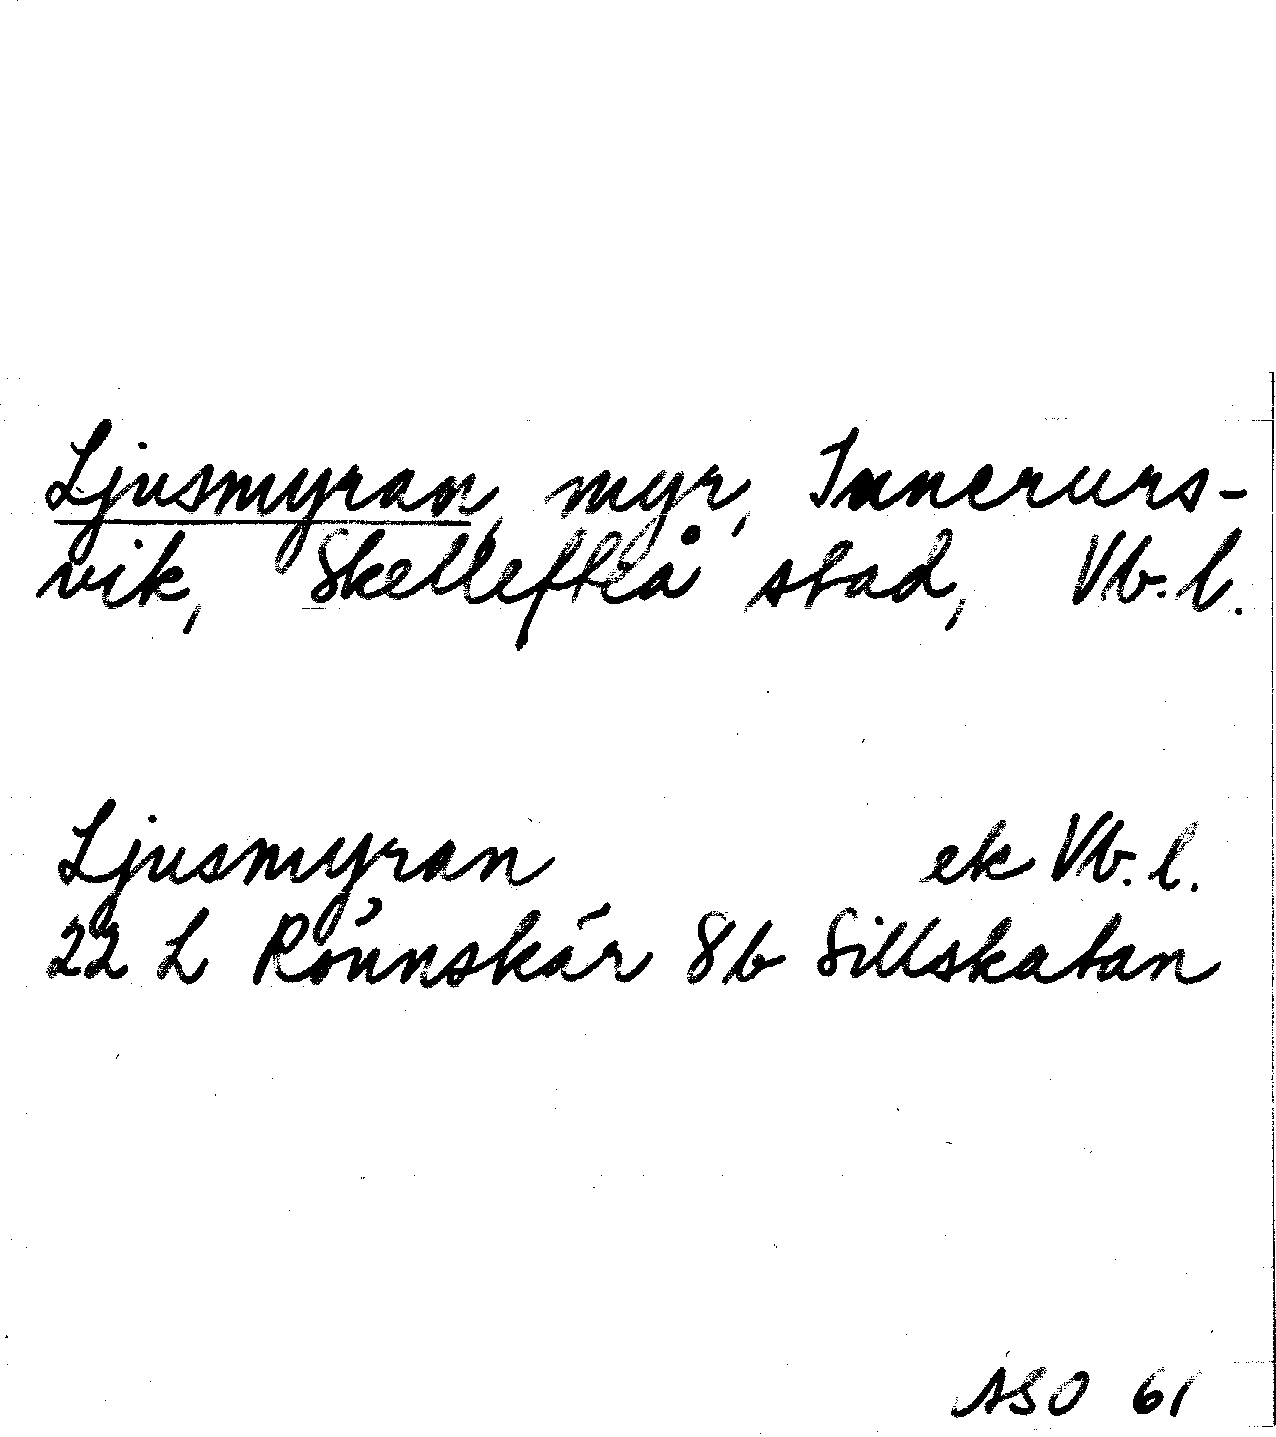 Ljusmyran, myr, Innerurs-
vik, Skellefteå stad, Vb. l.
Ljusmyran ek Vb. l.
22 L Rönnskär 8b Sillskatan
ASO 61